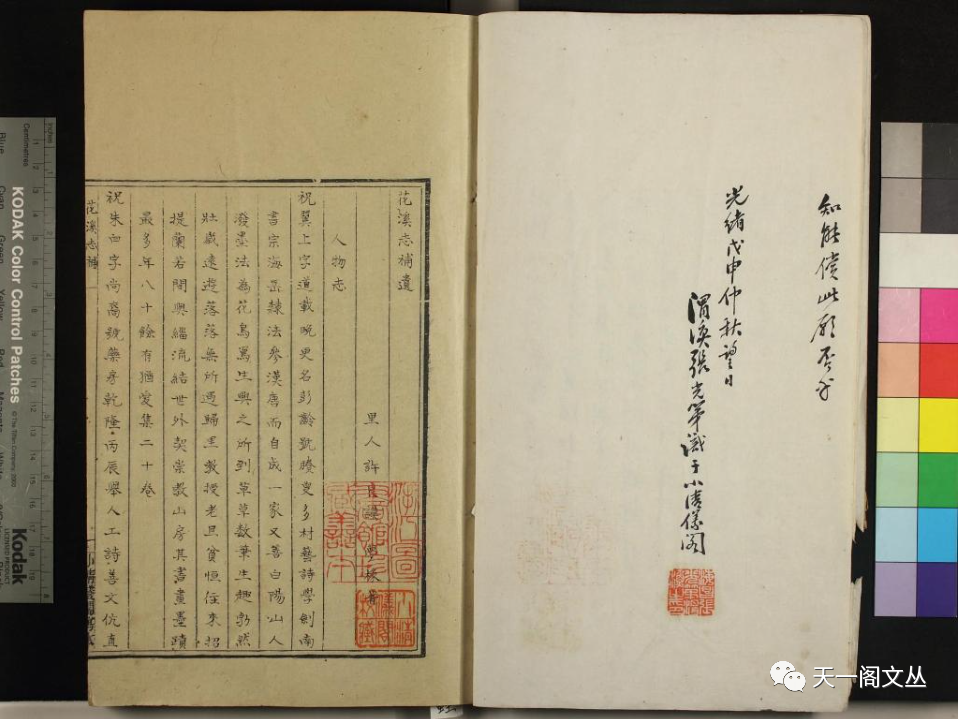 知能償此願否乎
光緒戊申仲秋望日
渭漁張光第識于小清儀閣
花溪志補遺
人物志
里人許
祝翼上字道載晚更名彭齡號瞭叟多材藝詩學劍南
書宗海岳隸法參漢唐而自成一家又善白陽山人
潑墨法為花鳥寫生興之所到草草數筆生趣勃然
壯歲遠遊落落無所遇歸里教授老且貧恒往來招
提蘭若間與緇流結世外契崇教山房其書畫墨蹟
最多年八十餘有猶愛集二十卷
祝朱字尚喬號藥房乾隆丙辰舉人工詩善文伉直
花溪志補
天一阁文丛
KODAK Color Control Patches
Kodak
LICENSED PRODUCT
Centimetres
Inches
Blue
Cyan
Green
Yellow
Red
Magenta
White